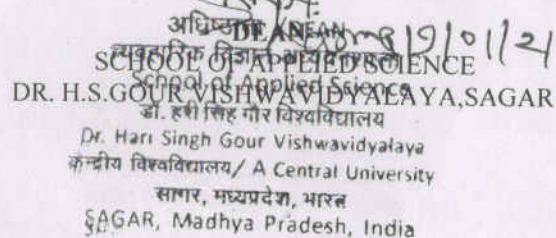 अधिष्ठाता / DEAN
DEAN
19/01/21
SCHOOL OF APPLIED SCIENCE
School of Applied Science
DR. H.S.GOUR VISHWAVIDYALAYA,SAGAR
डॉ. हरी सिंह गौर विश्वविद्यालय
Dr. Hari Singh Gour Vishwavidyalaya
केन्द्रीय विश्वविद्यालय/ A Central University
सागर, मध्यप्रदेश, भारत
SAGAR, Madhya Pradesh, India